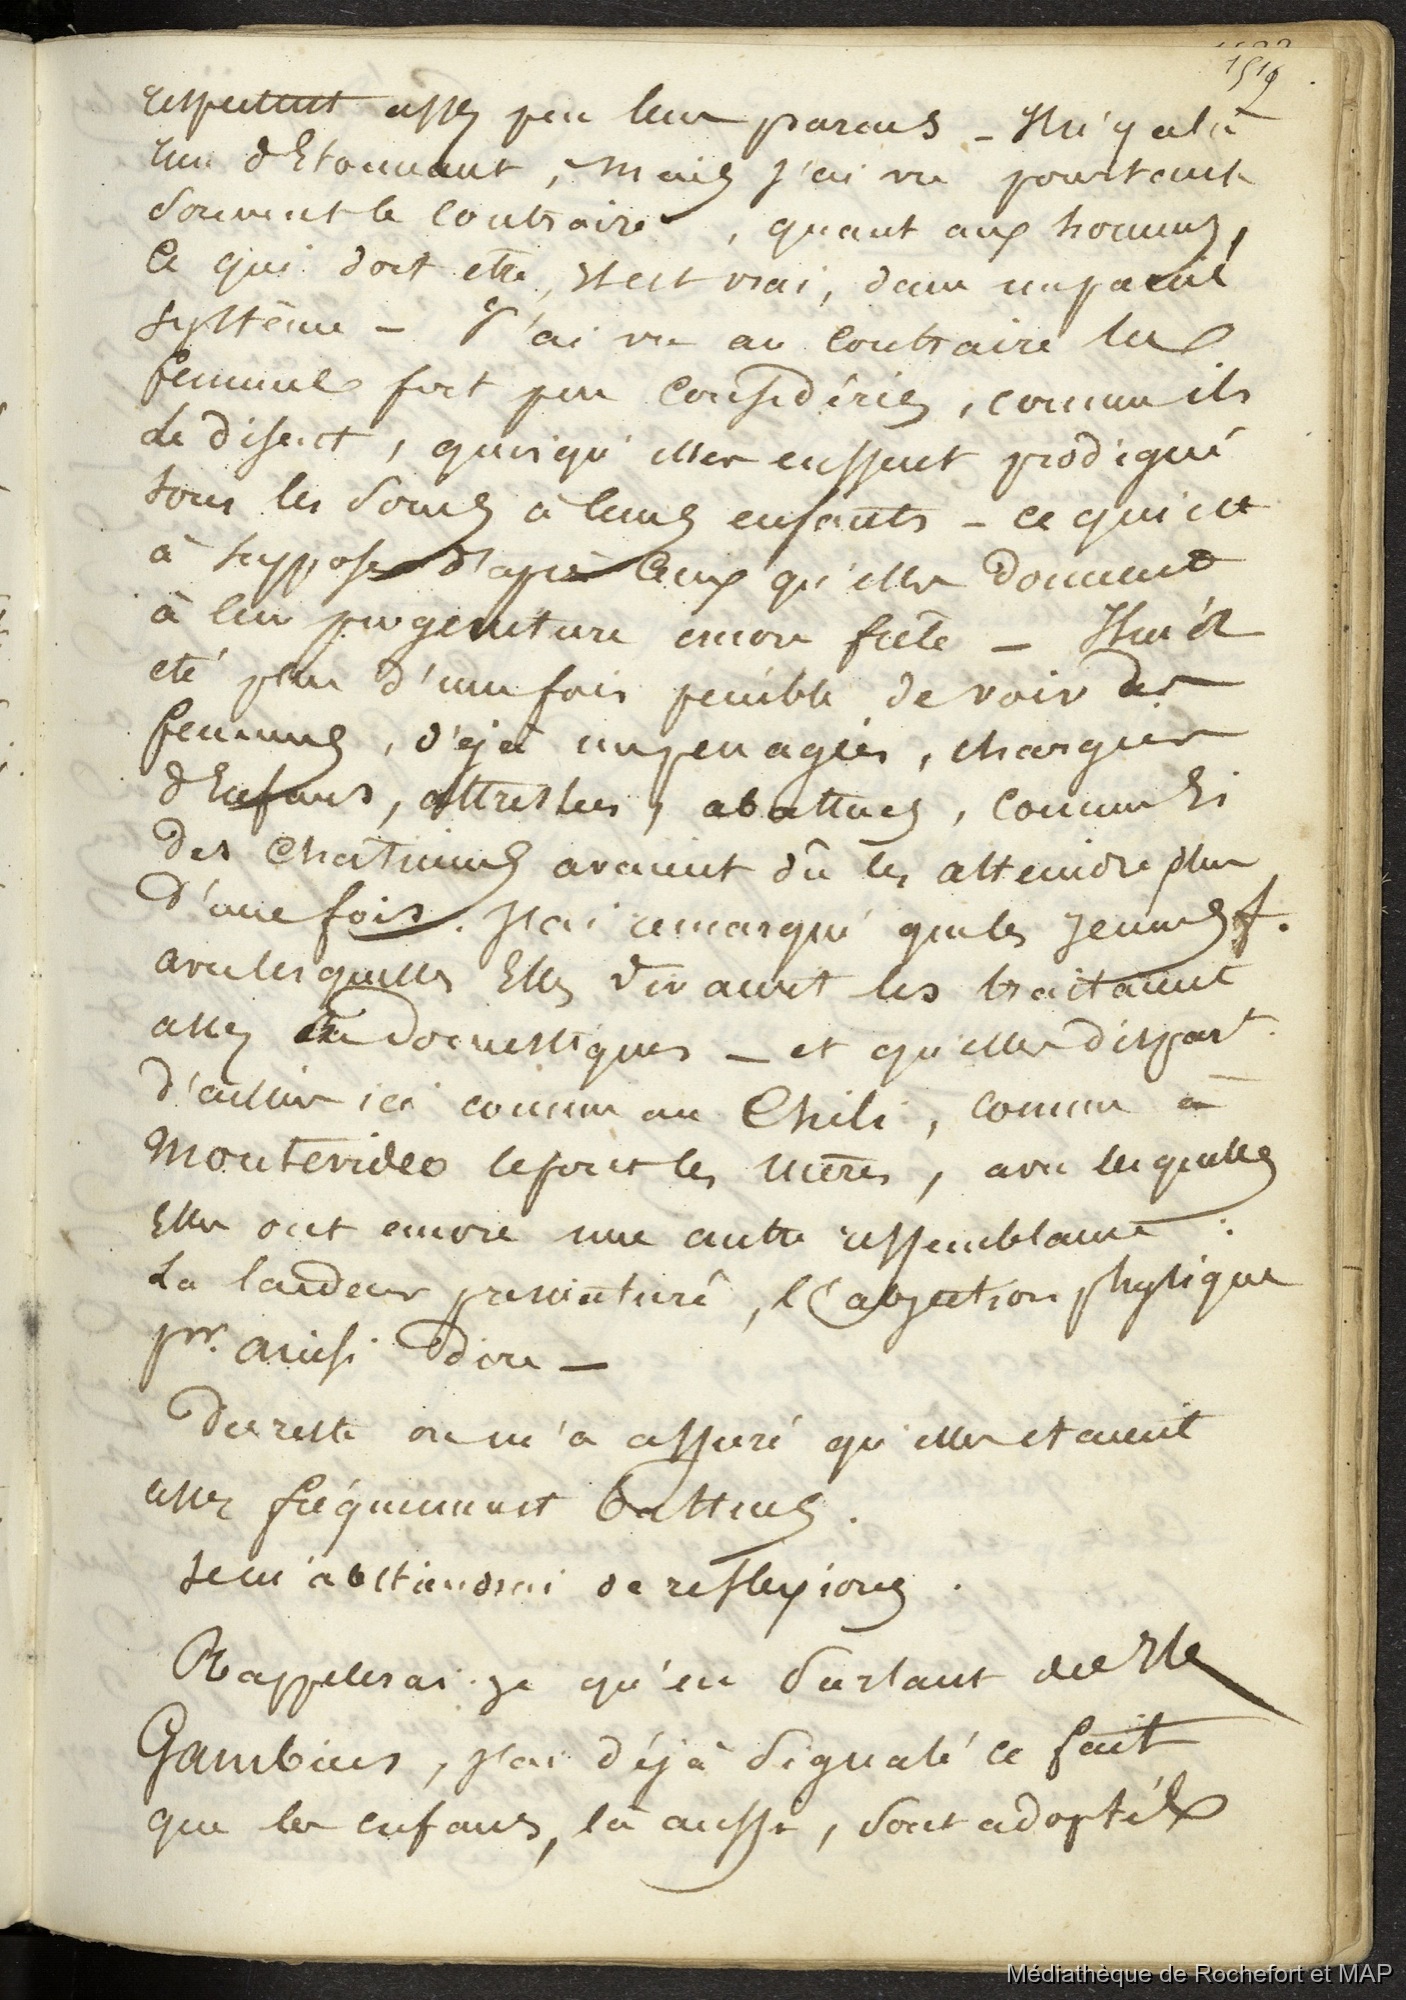 1519
respectent assez peu leurs parens – Il n'y a là
rien d'Etonnant, mais j'ai vu pourtant
souvent le contraire, quant aux hommes,
ce qui doit etre, il est vrai, dans un pareil
système – J'ai vu au contraire les
femmes fort peu considérées, comme ils
le disent, quoiqu'elles eussent prodigué
tous les soins à leurs enfants – ce qui est
à supposer d'après ceux qu'elles donnent
à leur progeniture encore frêle – Il m'a
eté plus d'une fois penible de voir des
femmes, déjà un peu agées, chargées
d'Enfans, attristées, abattues, comme si
des chatimens avaient dû les atteindre plus
d'une fois. J'ai remarqué que les jeunes f.
avec lesquelles Elles vivaient les traitaient
assez en domestiques – et qu'elles dispart.
d'ailleurs ici comme au Chili, comme à
Montevideo le font les mères, avec lesquelles
Elles ont encore une autre ressemblance :
La laideur prematurê, l'abjection physique
pr. ainsi dire –
Du reste on m'a assuré qu'elles etaient
assez fréquemment battues.
Je m'abstiendrai de reflexions.
Rappellerai-je qu'en parlant des Iles
Gambiers, j'ai déjà signalé ce fait
que les enfans, là aussi, sont adoptés
Médiathèque de Rochefort et MAP